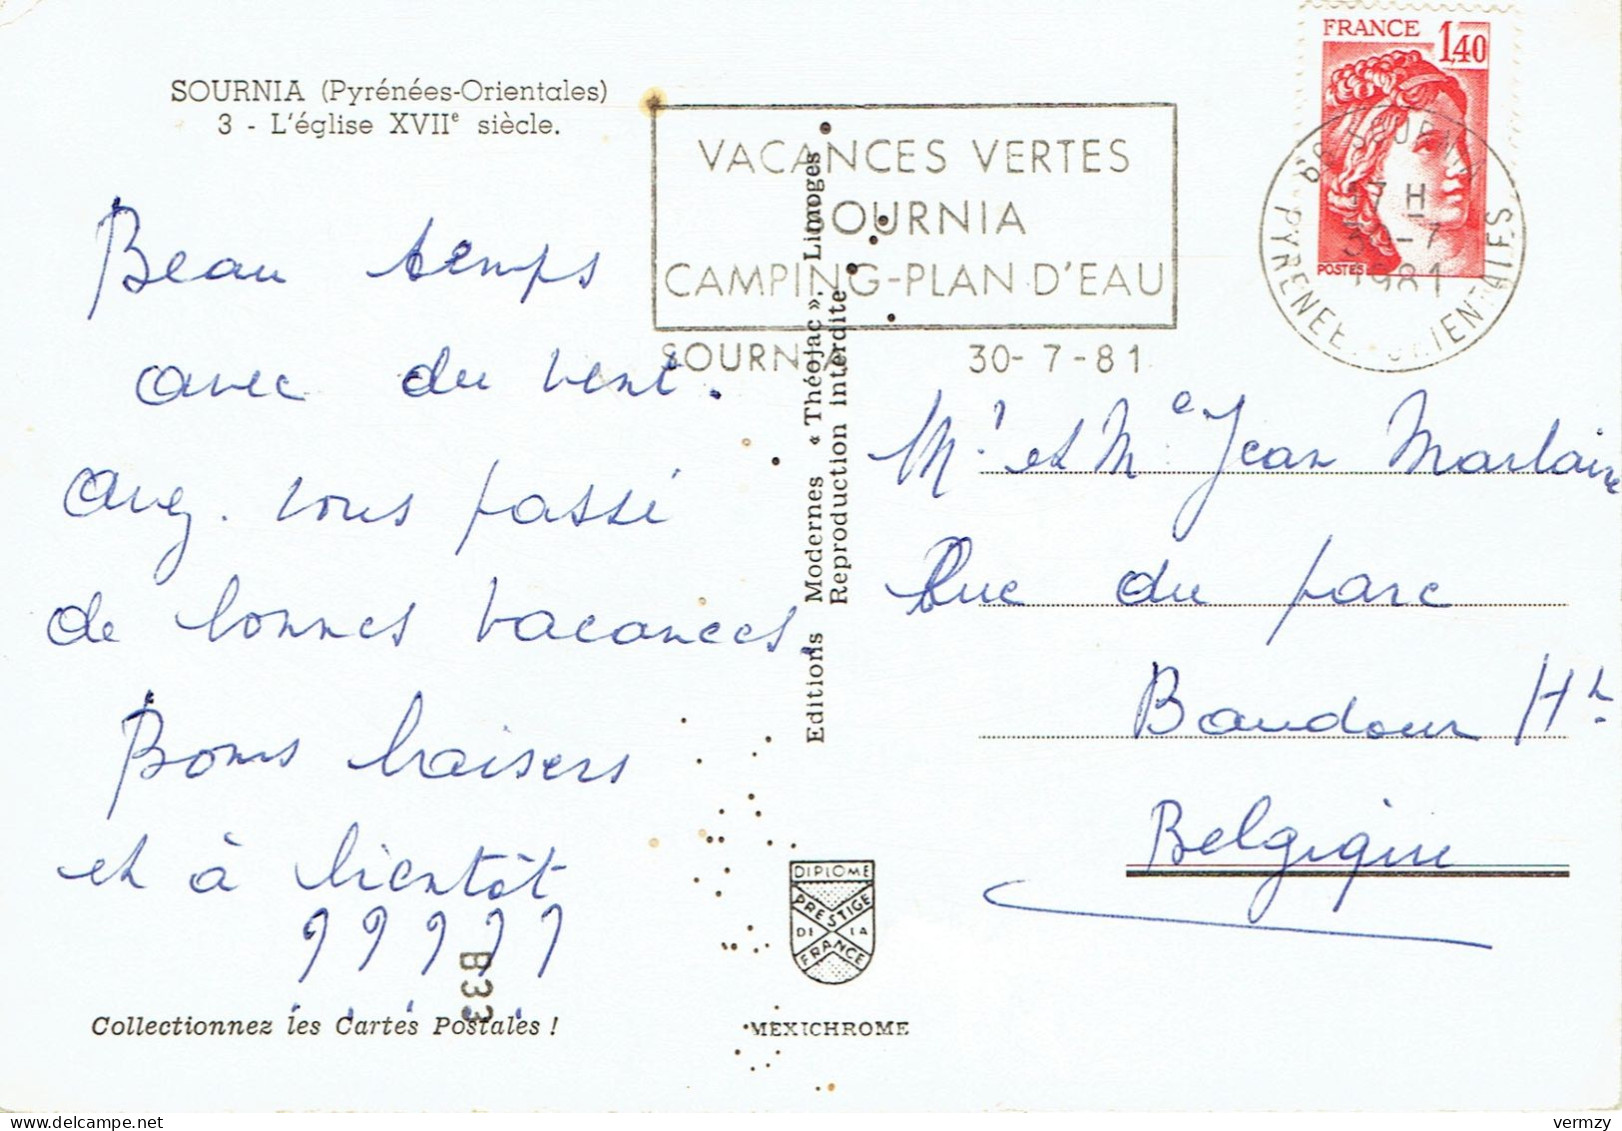 SOURNIA (Pyrénées-Orientales)
3 - L'église XVIIe siècle.
Beau temps
avec du vent.
avez. vous passé
de bonnes vacances.
Bons baisers
et à bientôt
?????
B33
Collectionnez les Cartes Postales !
VACANCES VERTES
SOURNIA
CAMPING-PLAN D'EAU
SOURNIA 30-7-81
Editions Modernes « Théojac ». Limoges
Reproduction interdite
DIPLOME
PRESTIGE
DE LA
FRANCE
MEXICHROME
FRANCE 1,40
POSTES
SOURNIA
17 H
30-7
1981
PYRENEES ORIENTALES
Mr et Me Jean Marlaire
Rue du parc
Baudour Ht
Belgique
vermzy